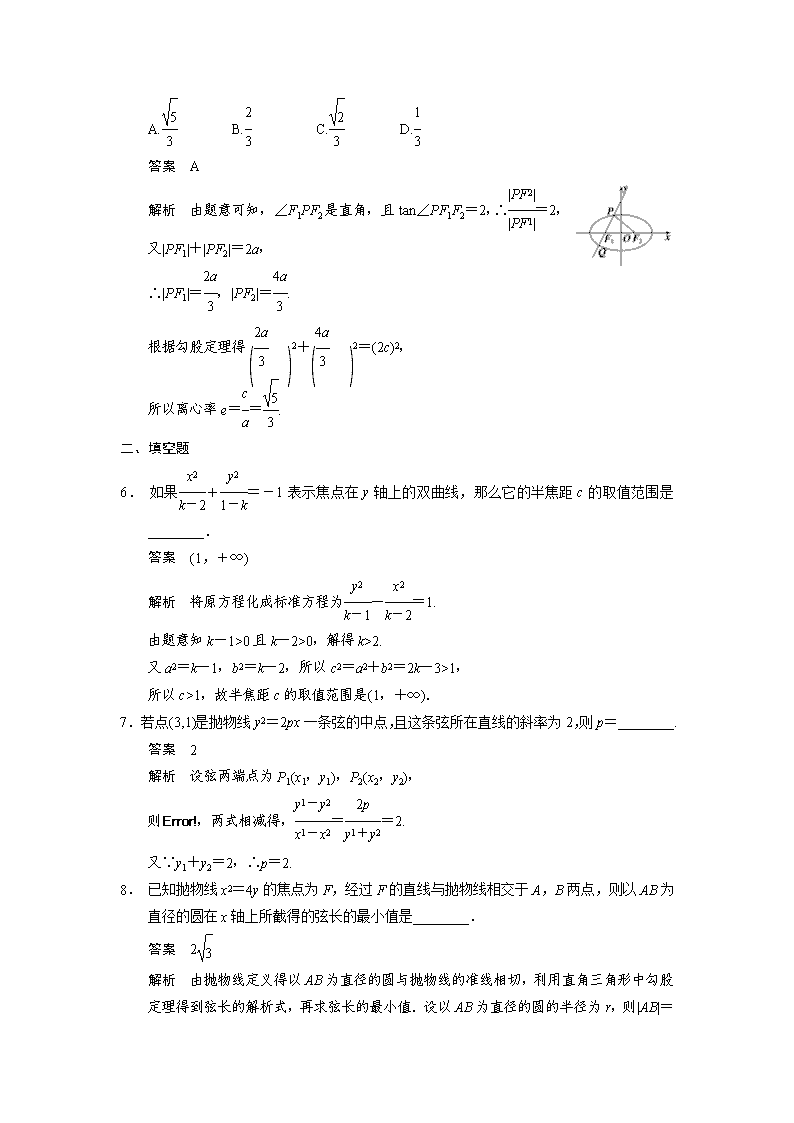 A.√5/3 B.2/3 C.√2/3 D.1/3
答案 A
解析 由题意可知,∠F₁PF₂是直角,且tan∠PF₁F₂=2,∴|PF2|/|PF1|=2,
又|PF₁|+|PF₂|=2a,
∴|PF₁|=2a/3,|PF₂|=4a/3.
根据勾股定理得(2a/3)²+(4a/3)²=(2c)²,
所以离心率e=c/a=√5/3.
y
P
F₁ O F₂ x
Q
二、填空题
6. 如果x2/(k-2)+y2/(1-k)=-1表示焦点在y轴上的双曲线,那么它的半焦距c的取值范围是
________.
答案 (1,+∞)
解析 将原方程化成标准方程为y2/(k-1)-x2/(k-2)=1.
由题意知k-1>0且k-2>0,解得k>2.
又a²=k-1,b²=k-2,所以c²=a²+b²=2k-3>1,
所以c>1,故半焦距c的取值范围是(1,+∞).
7.若点(3,1)是抛物线y²=2px一条弦的中点,且这条弦所在直线的斜率为2,则p=________.
答案 2
解析 设弦两端点为P₁(x₁,y₁),P₂(x₂,y₂),
则Error!,两式相减得,(y1-y2)/(x1-x2)=2p/(y1+y2)=2.
又∵y₁+y₂=2,∴p=2.
8. 已知抛物线x²=4y的焦点为F,经过F的直线与抛物线相交于A,B两点,则以AB为
直径的圆在x轴上所截得的弦长的最小值是________.
答案 2√3
解析 由抛物线定义得以AB为直径的圆与抛物线的准线相切,利用直角三角形中勾股
定理得到弦长的解析式,再求弦长的最小值.设以AB为直径的圆的半径为r,则|AB|=